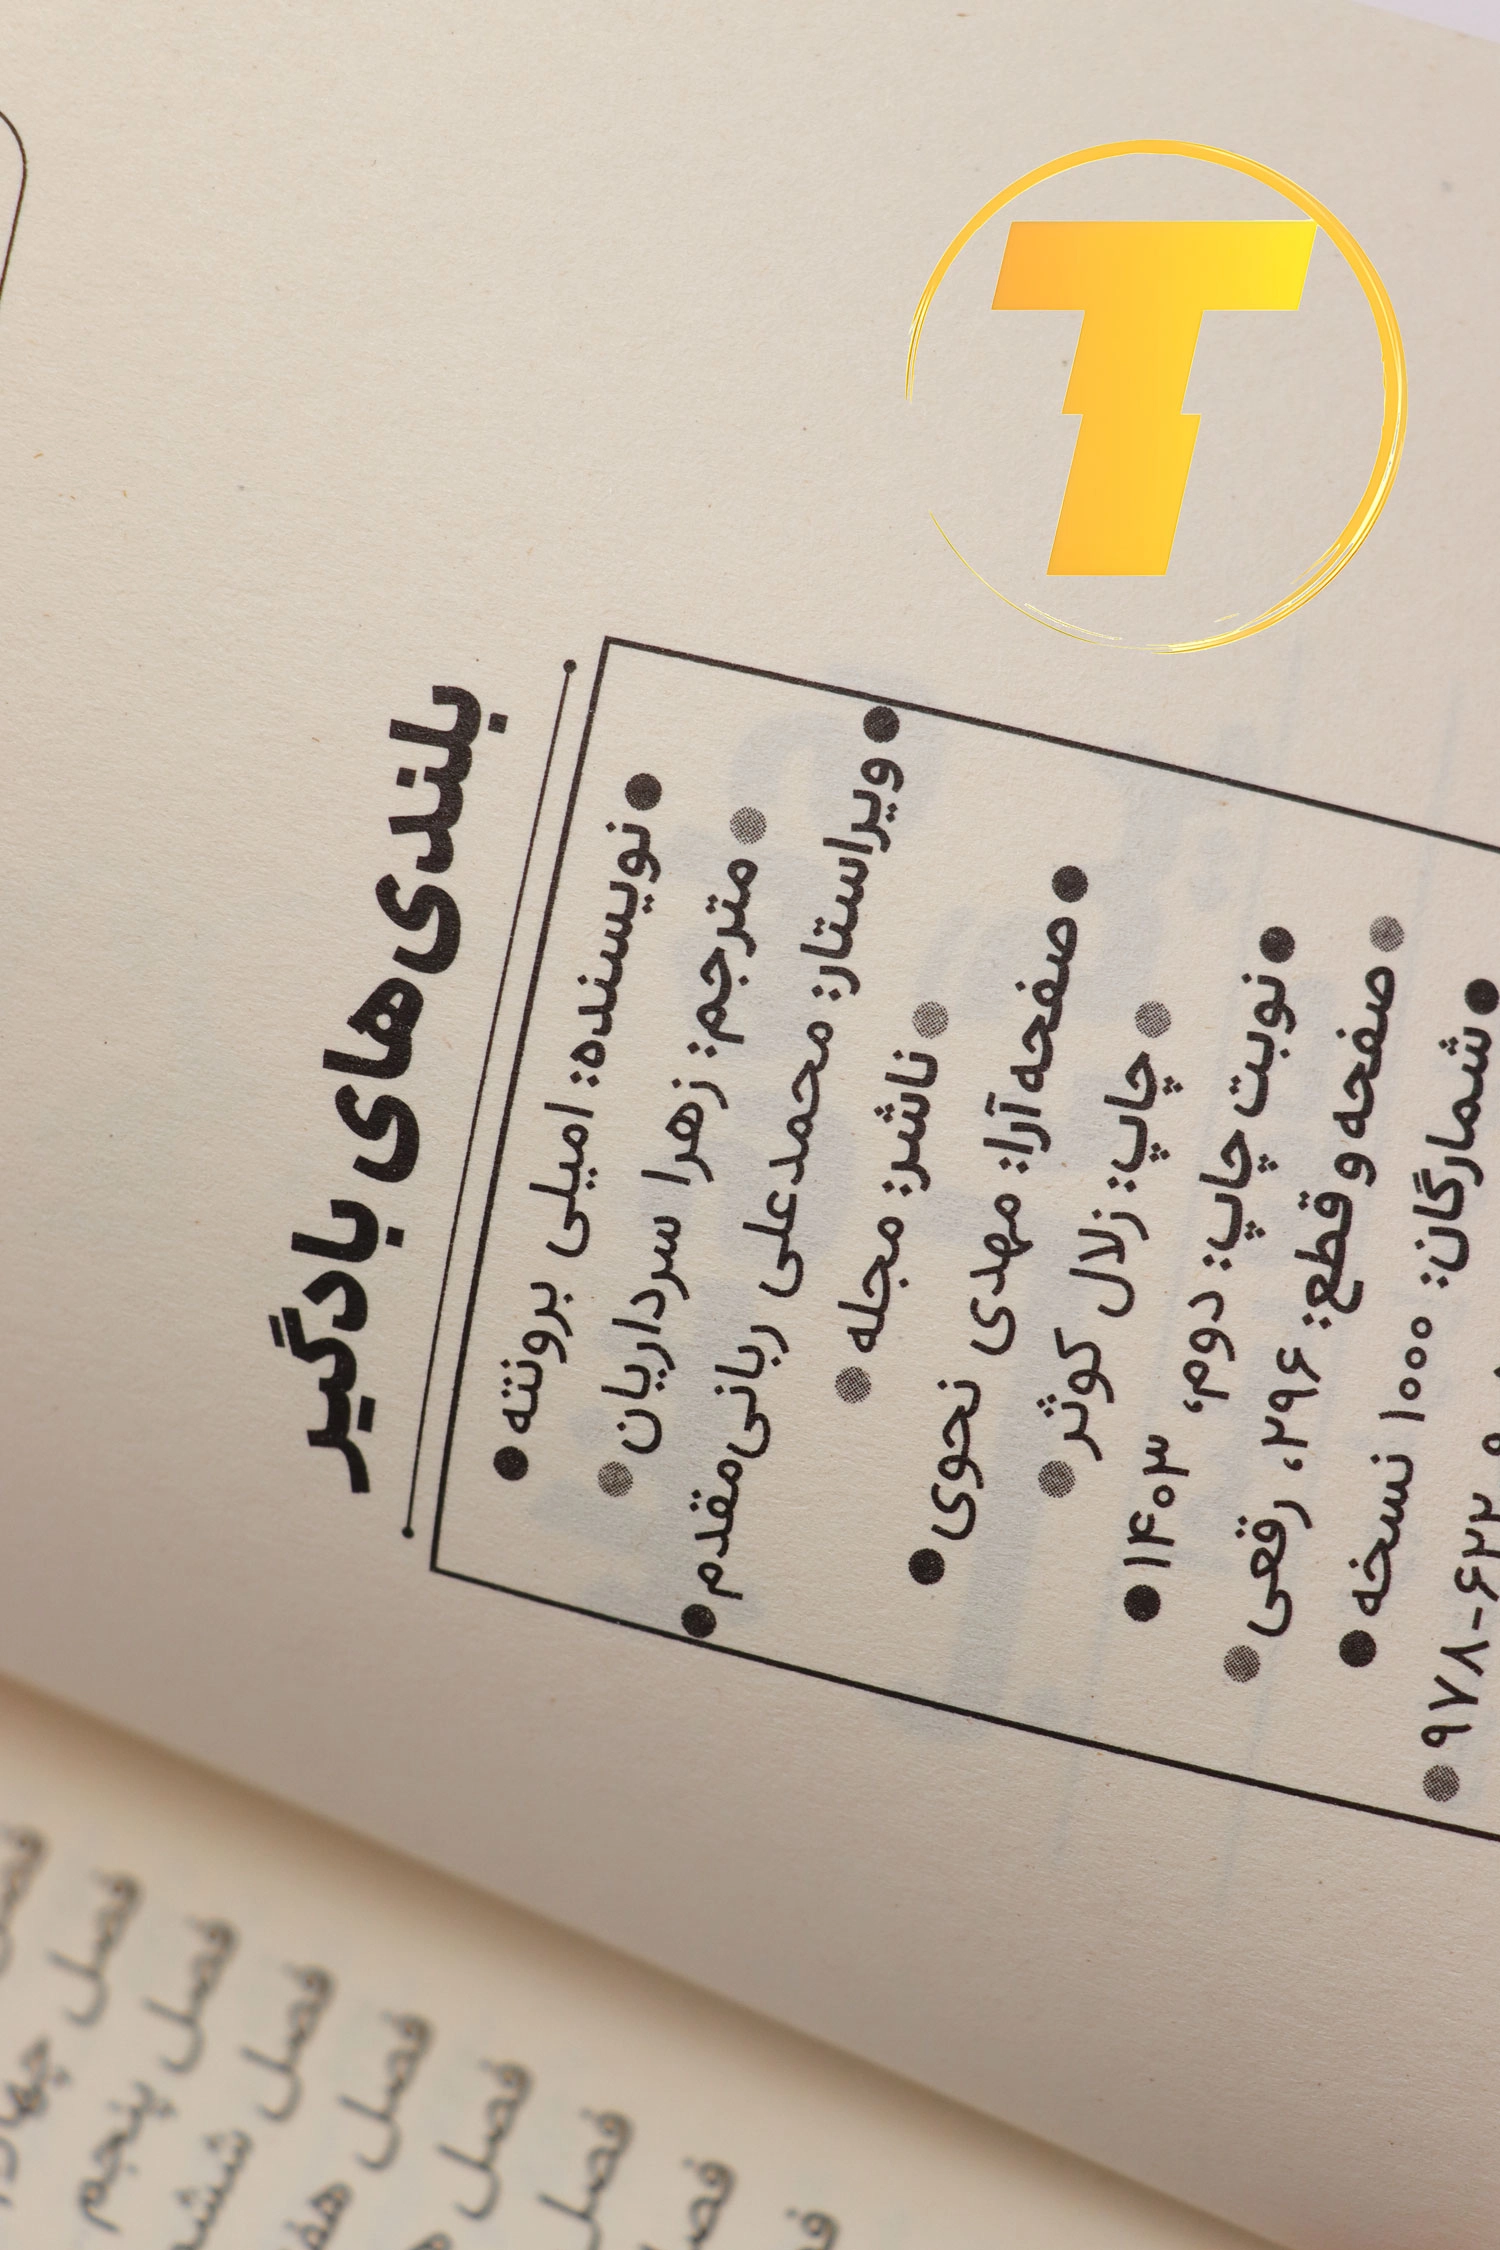 بلندی‌های بادگیر
نویسنده: امیلی برونته
مترجم: زهرا سرداریان
ویراستار: محمدعلی ربانی‌مقدم
ناشر: مجله
صفحه‌آرا: مهدی نحوی
چاپ: زلال کوثر
نوبت چاپ: دوم، ۱۴۰۳
صفحه و قطع: ۲۹۶، رقعی
شمارگان: ۱۰۰۰ نسخه
۹۷۸-۶۲۲
T
فصل
فصل چهارم
فصل پنجم
فصل ششم
فصل
فصل
فصل